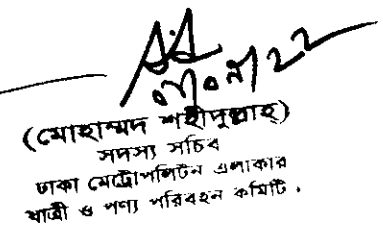 (মোহাম্মদ শহীদুল্লাহ)
সদস্য সচিব
ঢাকা মেট্রোপলিটন এলাকার
যাত্রী ও পণ্য পরিবহন কমিটি ।